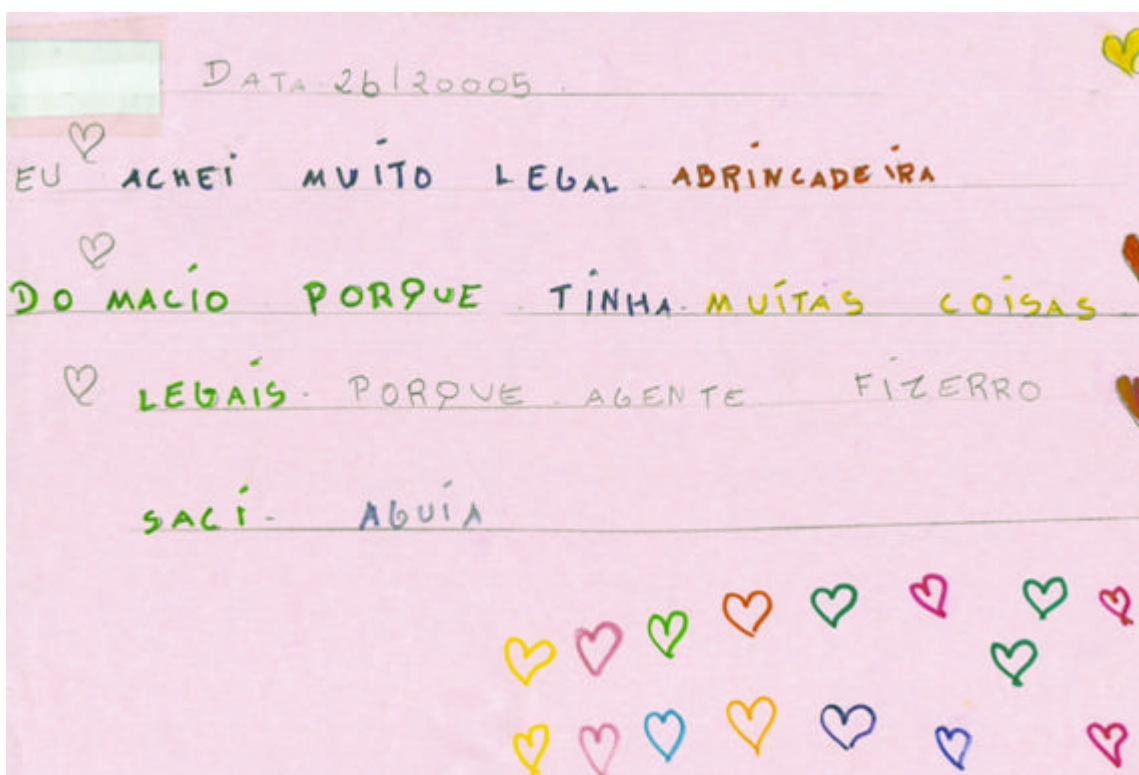 DATA 26/20005
EU ACHEI MUITO LEGAL ABRINCADEIRA
DO MACIO PORQUE TINHA MUITAS COISAS
LEGAIS. PORQUE AGENTE FIZERRO
SACI- AGUIA